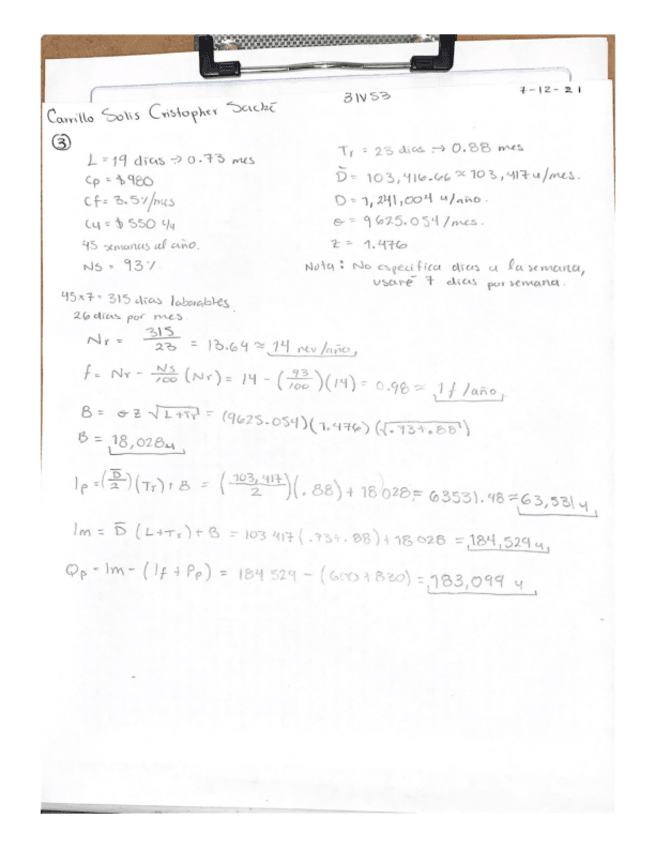 7-12-21
31V53
Carrillo Solis Cristopher
③
L = 19 días → 0.73 mes
Cp = $980
Cf = 3.5%/mes
Cu = $550 c/u
45 semanas al año.
NS = 93%
Tr = 23 dias → 0.88 mes
D̄ = 103,416.66 ≈ 103,417 u/mes.
D = 1,241,004 u/año.
σ = 9625.054/mes.
z = 1.476
Nota: No especifica dias a la semana,
usaré 7 dias por semana.
45x7 = 315 dias laborables.
26 dias por mes.
Nr = 315/23 = 13.69 ≈ 14 rev/año
f = Nr - NS/100 (Nr) = 14 - (93/100)(14) = 0.98 ≈ 1 f/año
B = σ z √L+Tr = (9625.054)(1.476)(√.73+.88)
B = 18,028 u
Ip = (D̄/2)(Tr) + B = (103,417/2)(.88) + 18028 = 63531.48 ≈ 63,531 u
Im = D̄ (L+Tr) + B = 103 417 (.73+.88) + 18 028 = 184,529 u
Qp = Im - (If + Pp) = 184 529 - (600 + 830) = 183,099 u